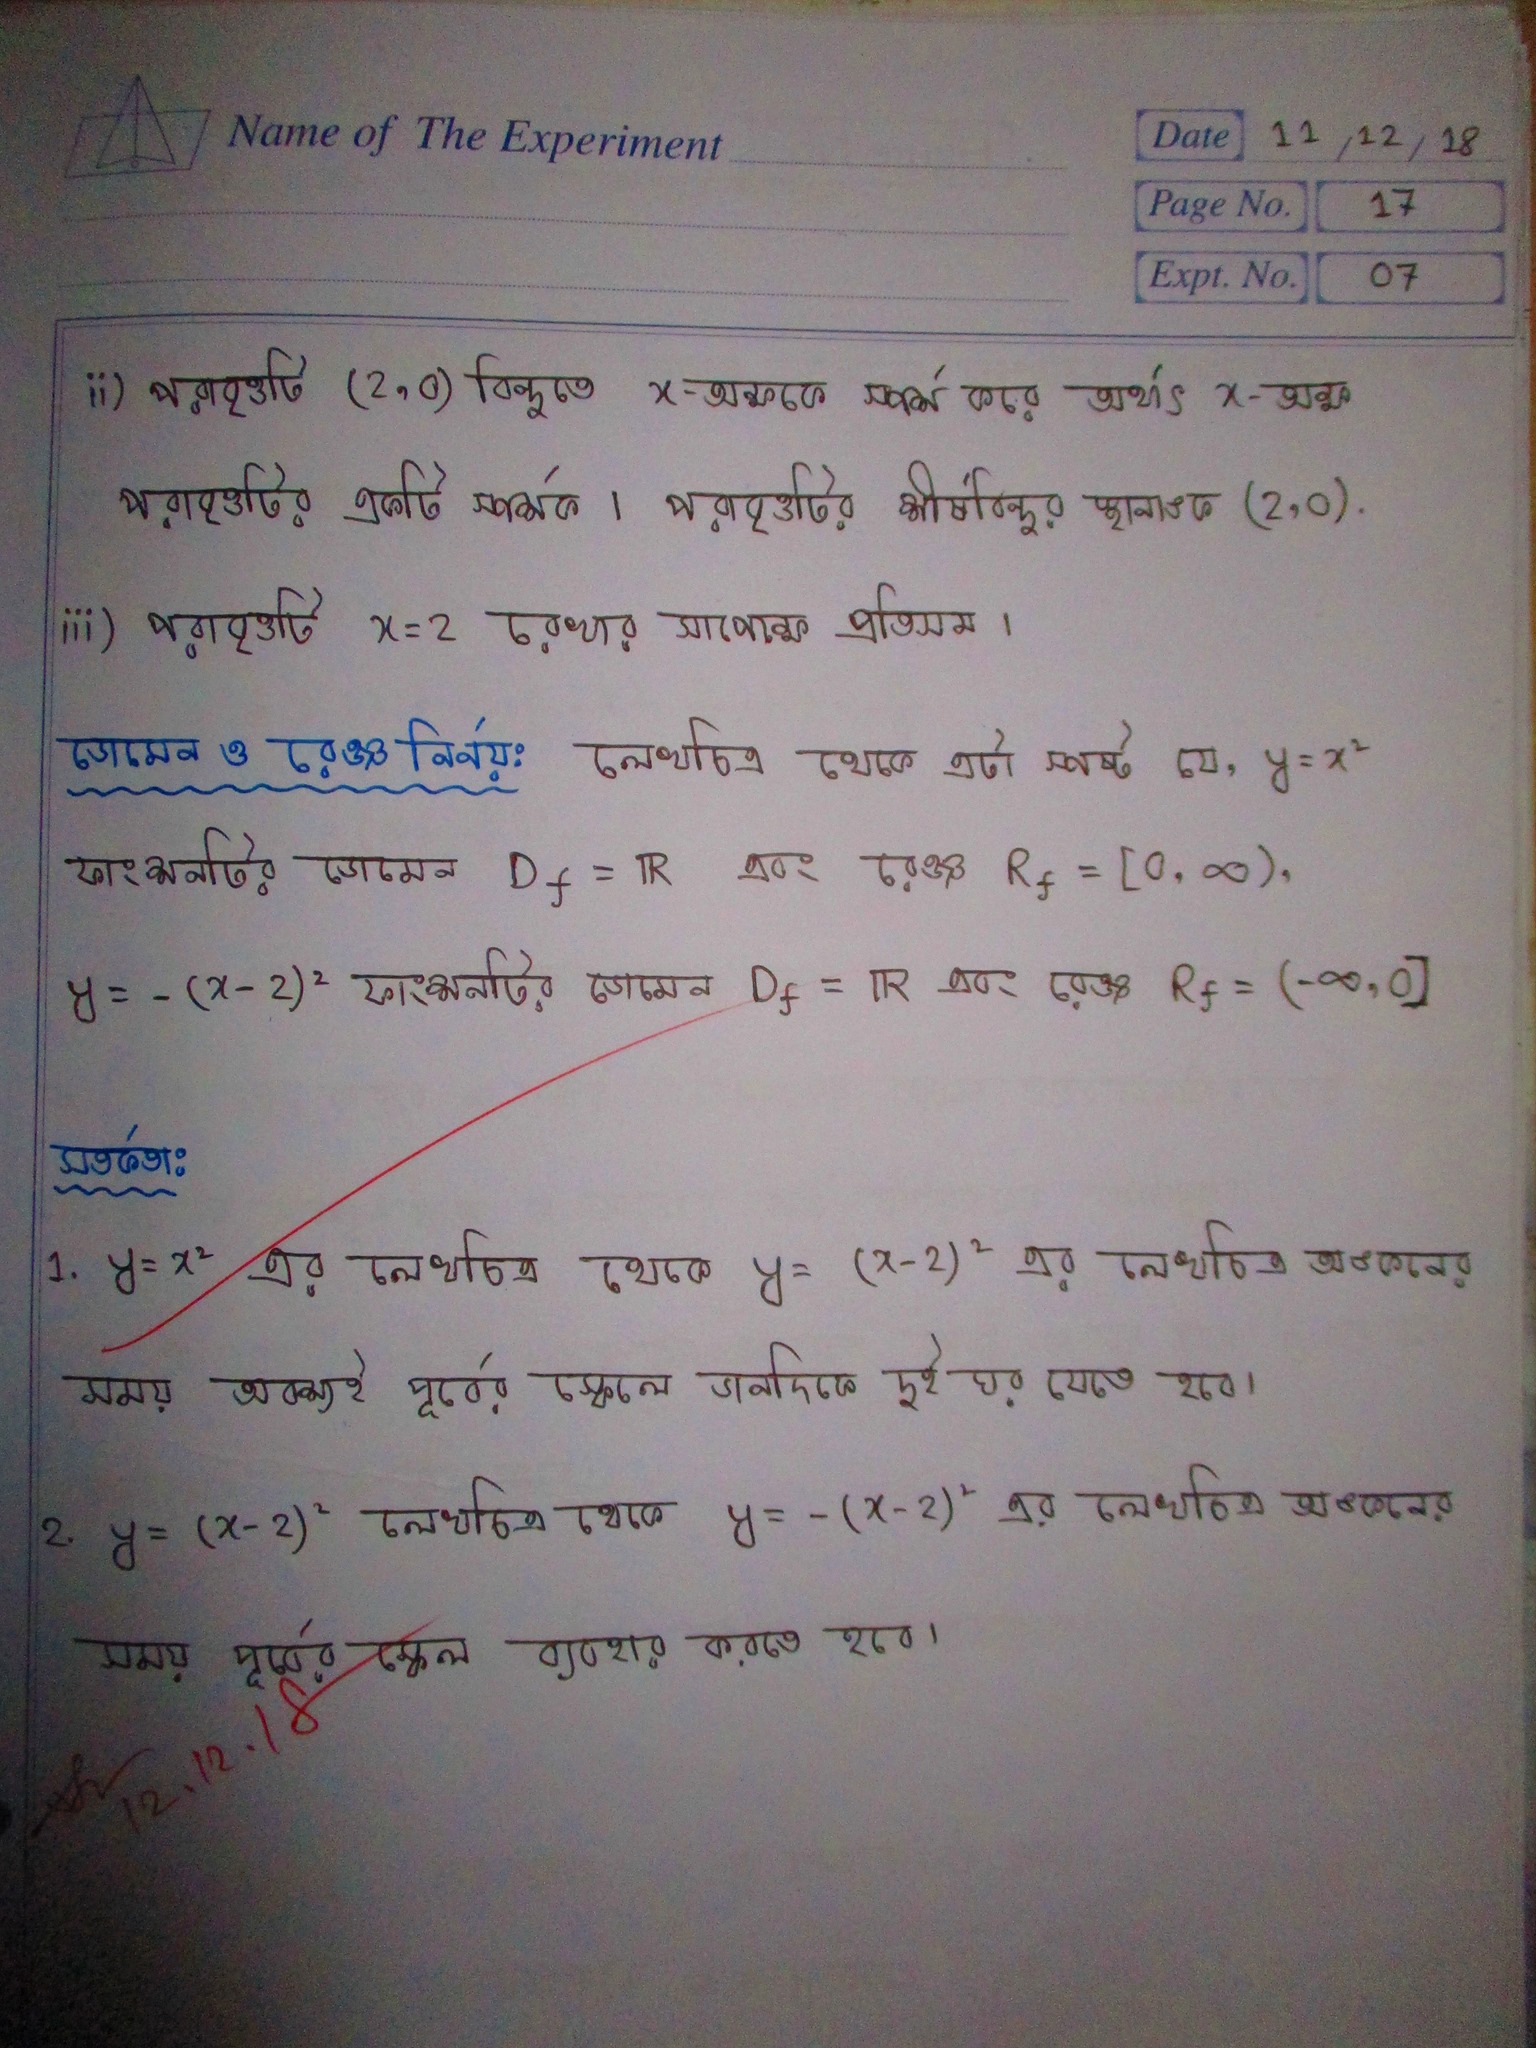 Name of The Experiment
Date 11/12/18
Page No. 17
Expt. No. 07
ii) পরাবৃত্তটি (2,0) বিন্দুতে x-অক্ষকে স্পর্শ করে অর্থাৎ x-অক্ষ
পরাবৃত্তটির একটি স্পর্শক। পরাবৃত্তটির শীর্ষবিন্দুর স্থানাঙ্ক (2,0).
iii) পরাবৃত্তটি x=2 রেখার সাপেক্ষে প্রতিসম।
ডোমেন ও রেঞ্জ নির্ণয়ঃ লেখচিত্র থেকে এটা স্পষ্ট যে, y=x²
ফাংশনটির ডোমেন D_f = ℝ এবং রেঞ্জ R_f = [0, ∞),
y = -(x-2)² ফাংশনটির ডোমেন D_f = ℝ এবং রেঞ্জ R_f = (-∞,0]
সতর্কতাঃ
1. y=x² এর লেখচিত্র থেকে y= (x-2)² এর লেখচিত্র অঙ্কনের
সময় অবশ্যই পূর্বের স্কেলে ডানদিকে দুই ঘর যেতে হবে।
2. y= (x-2)² লেখচিত্র থেকে y= -(x-2)² এর লেখচিত্র অঙ্কনের
সময় পূর্বের স্কেল ব্যবহার করতে হবে।
12.12.18